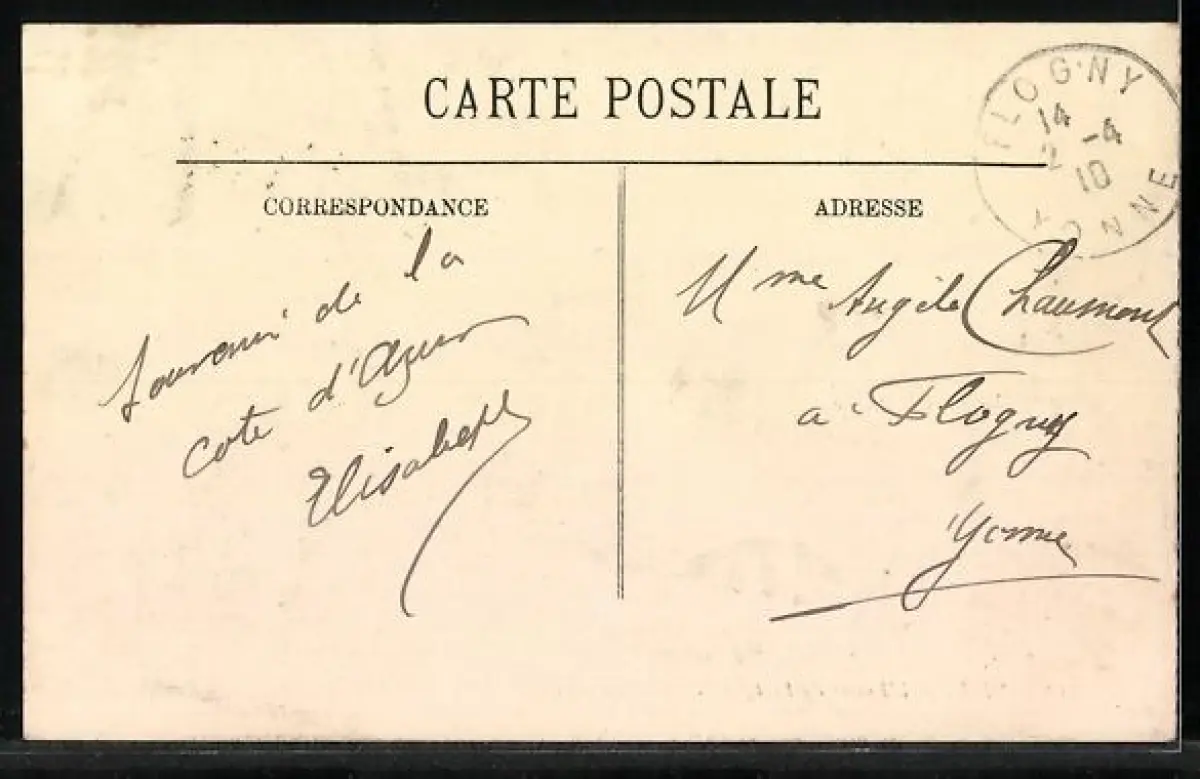 CARTE POSTALE
FLOGNY
14
2 -4
10
YONNE
CORRESPONDANCE
Souvenir de la
cote d'Azur
Elisabeth
ADRESSE
Mme Angèle Chaumont
a Flogny
Yonne